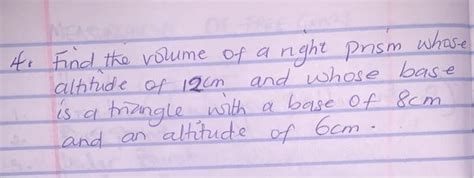 4. Find the volume of a right prism whose
altitude of 12cm and whose base
is a triangle with a base of 8cm
and an altitude of 6cm.